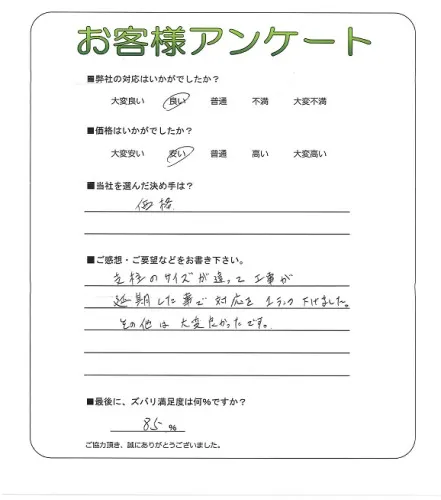 お客様アンケート
■弊社の対応はいかがでしたか?
大変良い 良い 普通 不満 大変不満
■価格はいかがでしたか?
大変安い 安い 普通 高い 大変高い
■当社を選んだ決め手は?
価格
■ご感想・ご要望などをお書き下さい。
支柱のサイズが違って工事が
延期した事で対応を1ランク下げました。
その他は大変良かったです。
■最後に、ズバリ満足度は何%ですか?
85 %
ご協力頂き、誠にありがとうございました。